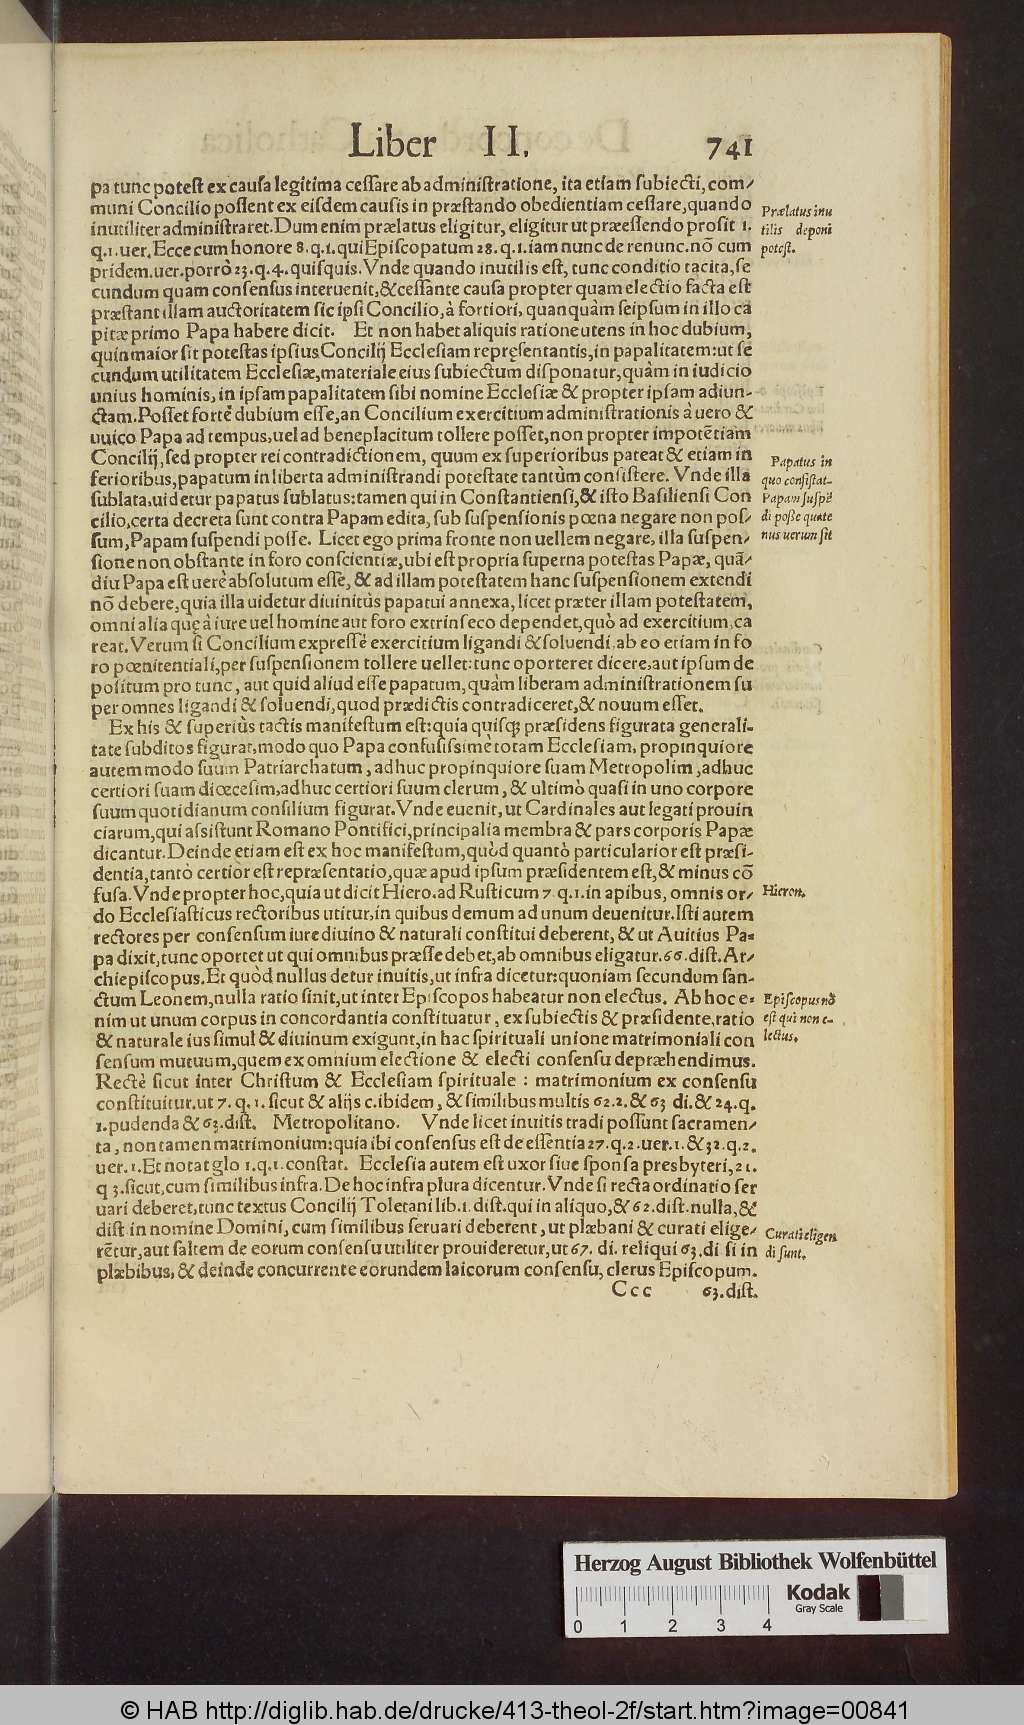 Liber II. 741
pa tunc potest ex causa legitima cessare ab administratione, ita etiam subiecti, com/
muni Concilio possent ex eisdem causis in præstando obedientiam cessare, quando
inutiliter administraret. Dum enim prælatus eligitur, eligitur ut præessendo prosit 1.
q.1.uer. Ecce cum honore 8.q.1.qui Episcopatum 28.q.1.iam nunc de renunc.nō cum
pridem.uer.porrò 23.q.4.quisquis. Vnde quando inutilis est, tunc conditio tacita, se
cundum quam consensus interuenit, & cessante causa propter quam electio facta est
præstant illam auctoritatem sic ipsi Concilio, à fortiori, quanquàm seipsum in illo ca
pitæ primo Papa habere dicit. Et non habet aliquis ratione utens in hoc dubium,
quin maior sit potestas ipsius Concilij Ecclesiam repręsentantis, in papalitatem: ut se
cundum utilitatem Ecclesiæ, materiale eius subiectum disponatur, quàm in iudicio
unius hominis, in ipsam papalitatem sibi nomine Ecclesiæ & propter ipsam adiun-
ctam. Posset fortè dubium esse, an Concilium exercitium administrationis à uero &
uuico Papa ad tempus, uel ad beneplacitum tollere posset, non propter impotētiam
Concilij, sed propter rei contradictionem, quum ex superioribus pateat & etiam in
ferioribus, papatum in liberta administrandi potestate tantùm consistere. Vnde illa
sublata, uidetur papatus sublatus: tamen qui in Constantiensi, & isto Basiliensi Con
cilio, certa decreta sunt contra Papam edita, sub suspensionis pœna negare non pos/
sum, Papam suspendi posse. Licet ego prima fronte non uellem negare, illa suspen/
sione non obstante in foro conscientiæ, ubi est propria superna potestas Papæ, quā/
diu Papa est uerè absolutum esse, & ad illam potestatem hanc suspensionem extendi
nō debere, quia illa uidetur diuinitùs papatui annexa, licet præter illam potestatem,
omni alia quę à iure uel homine aut foro extrinseco dependet, quò ad exercitium, ca
reat. Verum si Concilium expressè exercitium ligandi & soluendi, ab eo etiam in fo
ro pœnitentiali, per suspensionem tollere uellet: tunc oporteret dicere, aut ipsum de
positum pro tunc, aut quid aliud esse papatum, quàm liberam administrationem su
per omnes ligandi & soluendi, quod prædictis contradiceret, & nouum esset.
Ex his & superiùs tactis manifestum est: quia quisq; præsidens figurata generali-
tate subditos figurat, modo quo Papa confusissimè totam Ecclesiam, propinquiore
autem modo suum Patriarchatum, adhuc propinquiore suam Metropolim, adhuc
certiori suam diœcesim, adhuc certiori suum clerum, & ultimò quasi in uno corpore
suum quotidianum consilium figurat. Vnde euenit, ut Cardinales aut legati prouin
ciarum, qui assistunt Romano Pontifici, principalia membra & pars corporis Papæ
dicantur. Deinde etiam est ex hoc manifestum, quòd quantò particularior est præsi-
dentia, tantò certior est repræsentatio, quæ apud ipsum præsidentem est, & minus cō
fusa. Vnde propter hoc, quia ut dicit Hiero. ad Rusticum 7.q.1.in apibus, omnis or/
do Ecclesiasticus rectoribus utitur, in quibus demum ad unum deuenitur. Isti autem
rectores per consensum iure diuino & naturali constitui deberent, & ut Auitius Pa-
pa dixit, tunc oportet ut qui omnibus præsse debet, ab omnibus eligatur. 66. dist. Ar/
chiepiscopus. Et quòd nullus detur inuitis, ut infra dicetur: quoniam secundum san-
ctum Leonem, nulla ratio sinit, ut inter Episcopos habeatur non electus. Ab hoc e-
nim ut unum corpus in concordantia constituatur, ex subiectis & præsidente, ratio
& naturale ius simul & diuinum exigunt, in hac spirituali unione matrimoniali con
sensum mutuum, quem ex omnium electione & electi consensu depræhendimus.
Rectè sicut inter Christum & Ecclesiam spirituale : matrimonium ex consensu
constituitur. ut 7. q. 1. sicut & alijs c. ibidem, & similibus multis 62.2. & 63 di. & 24. q.
1. pudenda & 63. dist. Metropolitano. Vnde licet inuitis tradi possunt sacramen/
ta, non tamen matrimonium: quia ibi consensus est de essentia 27.q.2.uer.1. & 32.q.2.
uer.1. Et notat glo 1.q.1.constat. Ecclesia autem est uxor siue sponsa presbyteri, 21.
q 3.sicut, cum similibus infra. De hoc infra plura dicentur. Vnde si recta ordinatio ser
uari deberet, tunc textus Concilij Toletani lib.1. dist. qui in aliquo, & 62. dist. nulla, &
dist in nomine Domini, cum similibus seruari deberent, ut plæbani & curati elige/
rētur, aut saltem de eorum consensu utiliter prouideretur, ut 67. di. reliqui 63. di si in
plæbibus, & deinde concurrente eorundem laicorum consensu, clerus Episcopum.
Ccc 63. dist.
Prælatus inu
tilis deponi
potest.
Papatus in
quo consistat
Papam suspē
di posse quate
nus uerum sit
Hieron.
Episcopus nō
est qui non e-
lectus.
Curati eligen
di sunt.
Herzog August Bibliothek Wolfenbüttel
Kodak
Gray Scale
0 1 2 3 4
© HAB http://diglib.hab.de/drucke/413-theol-2f/start.htm?image=00841